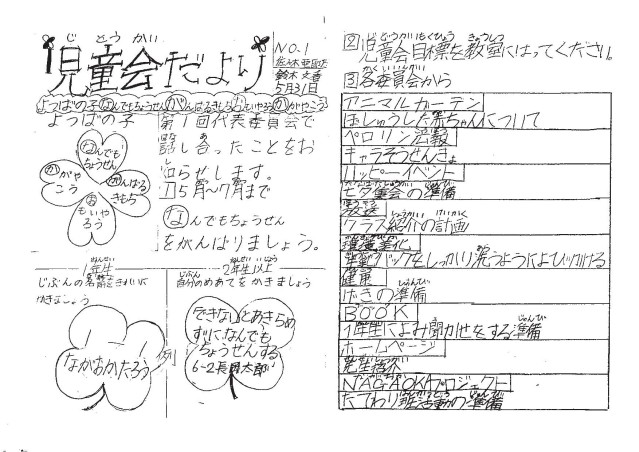 じどうかい
児童会だより
NO.1
鈴木
5月31日
よつばの子 なんでもちょうせん がんばるきもち おもいやろう かがやこう
よつばの子
なんでもちょうせん
がんばるきもち
おもいやろう
かがやこう
第1回代表委員会で
話し合ったことをお
知らせします。
①5月〜7月まで
なんでもちょうせん
をがんばりましょう。
1年生
じぶんの名前をきれいに
かきましょう
なかおかたろう
例
2年生以上
自分のめあてをかきましょう
できないとあきらめ
ずに、なんでも
ちょうせんする
6-2長岡太郎
②児童会目標を教室にはってください。
③各委員会から
アニマルガーデン
ほしゅうした赤ちゃんについて
ペロリン広報
キャラそうせんきょ
ハッピーイベント
七夕集会の準備
放送
クラス紹介の計画
環境美化
をしっかり洗うようによびかける
健康
げきの準備
BOOK
1年生によみ聞かせをする準備
ホームページ
先生紹介
NAGAOKAプロジェクト
たてわり班活動の準備